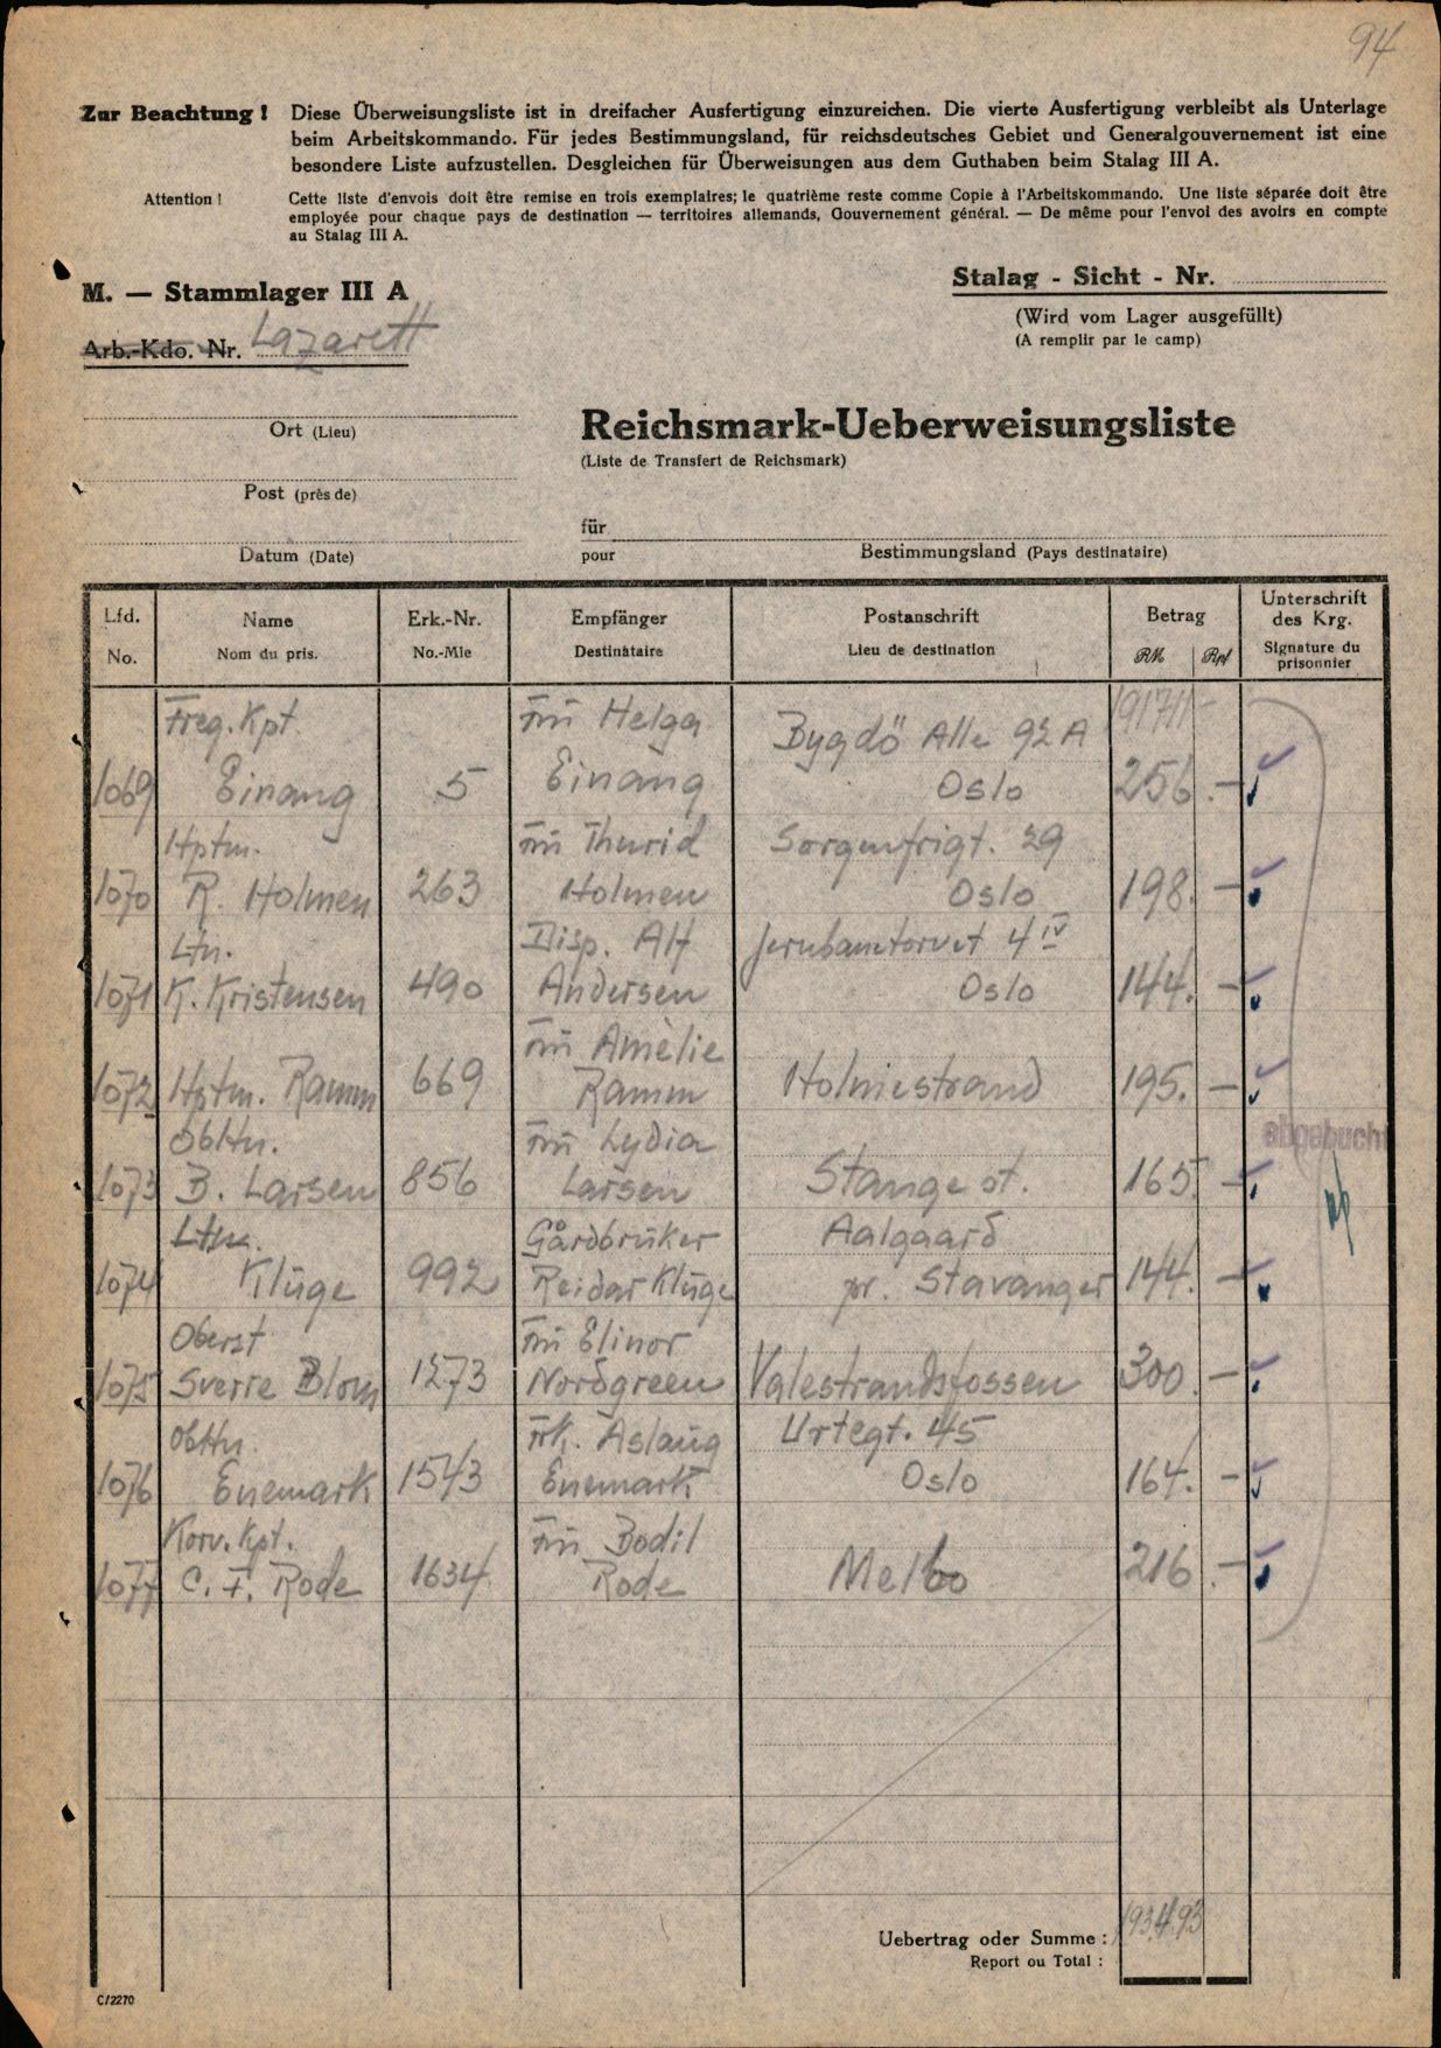 94
Zur Beachtung! Diese Überweisungsliste ist in dreifacher Ausfertigung einzureichen. Die vierte Ausfertigung verbleibt als Unterlage
beim Arbeitskommando. Für jedes Bestimmungsland, für reichsdeutsches Gebiet und Generalgouvernement ist eine
besondere Liste aufzustellen. Desgleichen für Überweisungen aus dem Guthaben beim Stalag III A.
Attention! Cette liste d'envois doit être remise en trois exemplaires; le quatrième reste comme Copie à l'Arbeitskommando. Une liste séparée doit être
employée pour chaque pays de destination — territoires allemands, Gouvernement général. — De même pour l'envoi des avoirs en compte
au Stalag III A.
M. — Stammlager III A
Arb.-Kdo. Nr. Lazarett
Stalag - Sicht - Nr.
(Wird vom Lager ausgefüllt)
(A remplir par le camp)
Ort (Lieu)
Post (près de)
Datum (Date)
Reichsmark-Ueberweisungsliste
(Liste de Transfert de Reichsmark)
für
pour Bestimmungsland (Pays destinataire)
Lfd. Name Erk.-Nr. Empfänger Postanschrift Betrag Unterschrift des Krg.
No. Nom du pris. No.-Mle Destinataire Lieu de destination RM Rpf Signature du prisonnier
Freg. Kpt. Helga Bygdö Alle 92 A
1069 Einang 5 Einang Oslo 256.—
Hptm. Thurid Sorgenfrigt. 29
1070 R. Holmen 263 Holmen Oslo 198.—
Ltn. Disp. Alf Jernbanetorvet 4 IV
1071 K. Kristensen 490 Andersen Oslo 144.—
Amèlie
1072 Hptm. Ramm 669 Ramm Holmestrand 195.—
Obltn. Lydia
abgebucht
1073 B. Larsen 856 Larsen Stange st. 165.—
Ltn. Gårdbruker Aalgaard
1074 Kluge 992 Reidar Kluge pr. Stavanger 144.—
Oberst Elinor
1075 Sverre Blom 1273 Nordgreen Valestrandsfossen 300.—
Obltn. Frk. Aslaug Urtegt. 45
1076 Enemark 1543 Enemark Oslo 164.—
Korv. Kpt. Bodil
1077 C. F. Rode 1634 Rode Melbo 216.—
Uebertrag oder Summe :
Report ou Total :
C/2270